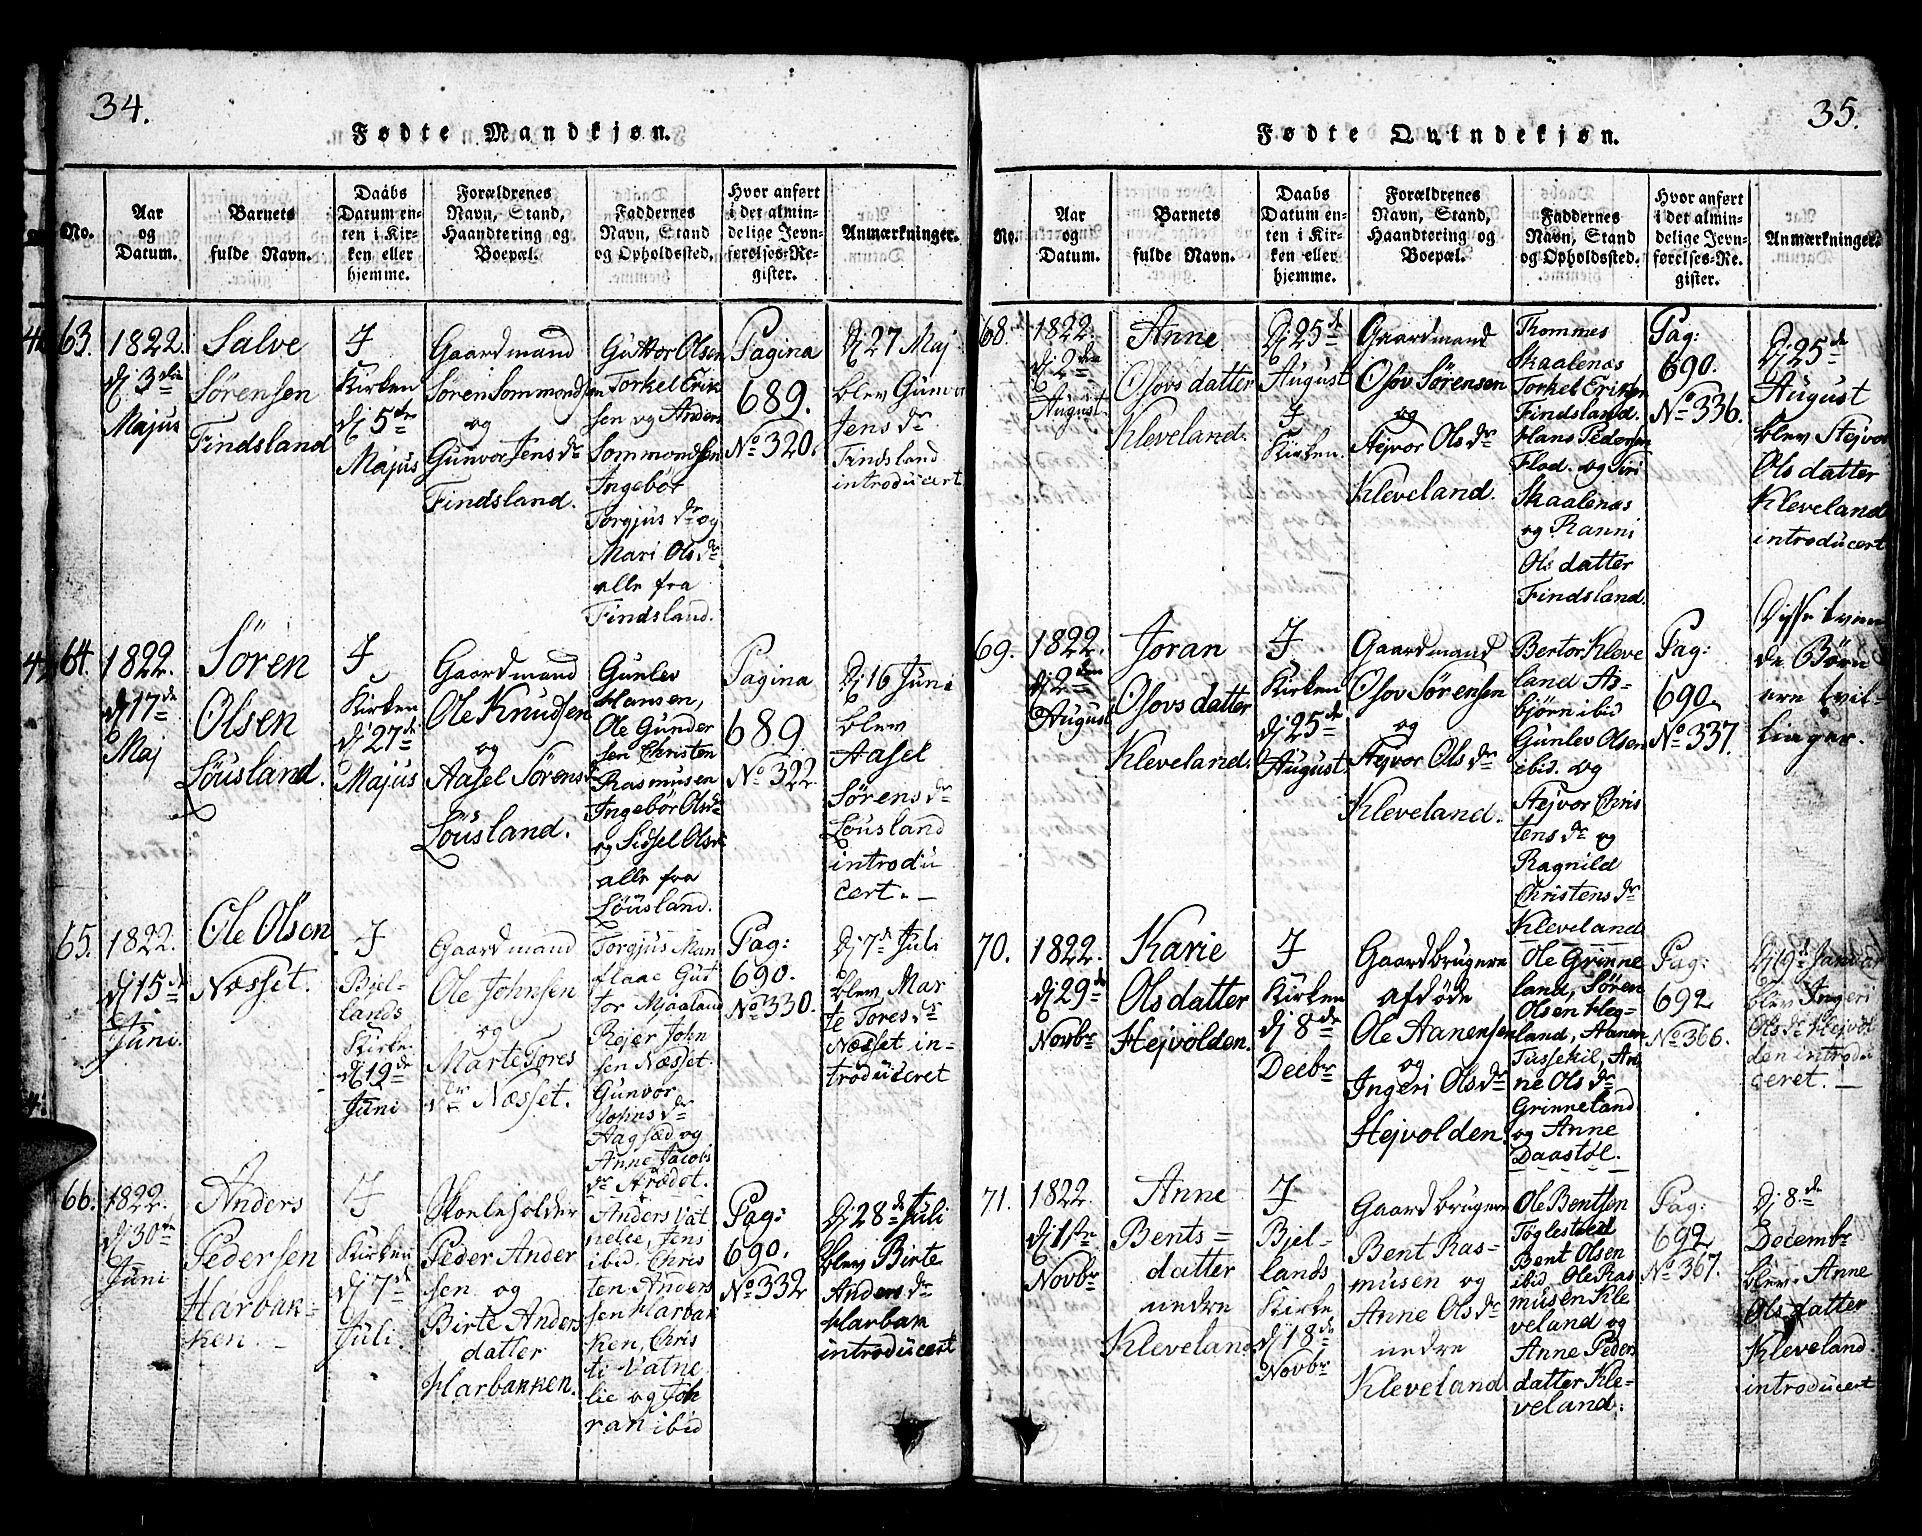 34.
Fødte Mandkjøn.
No.
Aar
og
Datum.
Barnets
fulde Navn.
Daabs
Datum en-
ten i Kir-
ken eller
hjemme.
Forældrenes
Navn, Stand,
Haandtering og
Boepæl.
Faddernes
Navn, Stand
og Opholdssted.
Hvor anført
i det almin-
delige Jevn-
førelses-Re-
gister.
Anmærkninger.
63.
1822.
Dj 3die
Majus
Salve
Sørensen
Findsland
I
Kirken
Dj 5te
Majus
Gaardmand
Søren Sommondsen
og
Gunvor Jens dr
Findsland.
Guttor Olsen
Torkel Erik
sen og Anders
Sommondsen
Ingebor
Torgjus dr og
Mari Ols dr
alle fra
Findsland.
Pagina
689.
No 320.
Dj 27 Maj
blev Gunvor
Jens dr
Findsland
introducert
64.
1822.
Dj 17de
Maj
Søren
Olsen
Løusland.
I
Kirken
Dj 27de
Majus
Gaardmand
Ole Knudsen
og
Aasel Sørens dr
Løusland.
Gunlev
Hansen,
Ole Gunder
sen Christen
Rasmusen
Ingebor Olsdr
og Sidsel Olsdr
alle fra
Løusland.
Pagina
689
No 322
Dj 16 Juni
blev
Aasel
Sørens dr
Løusland
introdu
cert. -
65.
1822.
Dj 15de
Juni.
Ole Olsen
Næsset.
I
Bjel-
lands
Kirke
Dj 19de
Juni
Gaardmand
Ole Johnsen
og
Marte Tores
dr Næsset.
Torgjus Man
flaae Gut
tor Mjaaland
Rejer John
sen Næsset
Gunvor
Johns dr
Aagsæd og
Anne Jacobs
dr Strødet.
Pag:
690.
No 330.
Dj 7de Juli
blev Mar
te Tores dr
Næsset in-
troduceret
66.
1822.
Dj 30te
Juni
Anders
Pedersen
Harbak-
ken. -
I
Kirken
Dj 7de
Juli.
Skoleholder
Peder Ander
sen og
Birte Anders
datter
Harbakken.
Anders Vat
nelie, Jens
ibid. Chris
ten Anders
sen Harbak
ken, Chris
ti Vatne
lie og Joh
ran ibid
Pag:
690.
No 332
Dj 28de Juli
blev Birte
Anders dr
Harbak
introducert
35.
Fødte Qvindekjøn.
No.
Aar
og
Datum.
Barnets
fulde Navn.
Daabs
Datum en-
ten i Kir-
ken eller
hjemme.
Forældrenes
Navn, Stand,
Haandtering og
Boepæl.
Faddernes
Navn, Stand
og Opholdssted.
Hvor anført
i det almin-
delige Jevn-
førelses-Re-
gister.
Anmærkninger.
68.
1822.
Dj 2den
August.
Anne
Osovs datter
Kleveland.
Dj 25de
August
I
Kirken.
Gaardmand
Osov Sørensen
og
Stejvor Ols dr
Kleveland.
Thommes
Skaalenæs
Torkel Eriksen
Findsland.
Hans Pedersen
Flad. og Siri
Skaalenæs
og Ranni
Ols datter
Findsland.
Pag:
690.
No 336.
Dj 25de
August
blev Stejvor
Ols datter
Kleveland
introducert
69.
1822.
Dj 2den
August
Joran
Osovs datter
Kleveland.
I
Kirken
Dj 25de
August.
Gaardmand
Osov Sørensen
og
Stejvor Ols dr
Kleveland.
Bertor Kleve
land As-
bjørn ibid
Gunlev Olsen
ibid. og
Stejvor Chris
tens dr og
Ragnild
Christens dr
Kleveland
Pag:
690.
No 337.
Disse tven
de Børn
ere tvil-
linger.
70.
1822.
Dj 29de
Novbr
Karie
Ols datter
Hejvolden.
I
Kirken
Dj 8de
Decbr
Gaardbrugere
afdøde
Ole Aanensen
og
Ingeri Ols dr
Hejvolden.
Ole Grinne
land, Søren
Olsen Heg-
land, Aanen
Tussekil, An
ne Ols dr
Grinneland
og Anne
Daastøl.
Pag:
692
No 366.
Dj 19de Januar
blev Ingeri
Ols dr Hejvol
den introdu
ceret. -
71.
1822.
Dj 1ste
Novbr
Anne
Bents-
datter
nedre
Kleveland
I
Bjel-
lands
Kirke
Dj 18de
Novbr
Gaardbrugere
Bent Ras-
musen og
Anne Ols dr
nedre
Kleveland
Ole Bentsen
Tøglestad
Bent Olsen
ibid. Ole Ras
musen Kle
veland og
Anne Peders
datter Kle-
veland.
Pag:
692
No 367.
Dj 8de
Decembr
blev Anne
Ols datter
Kleveland
introducert